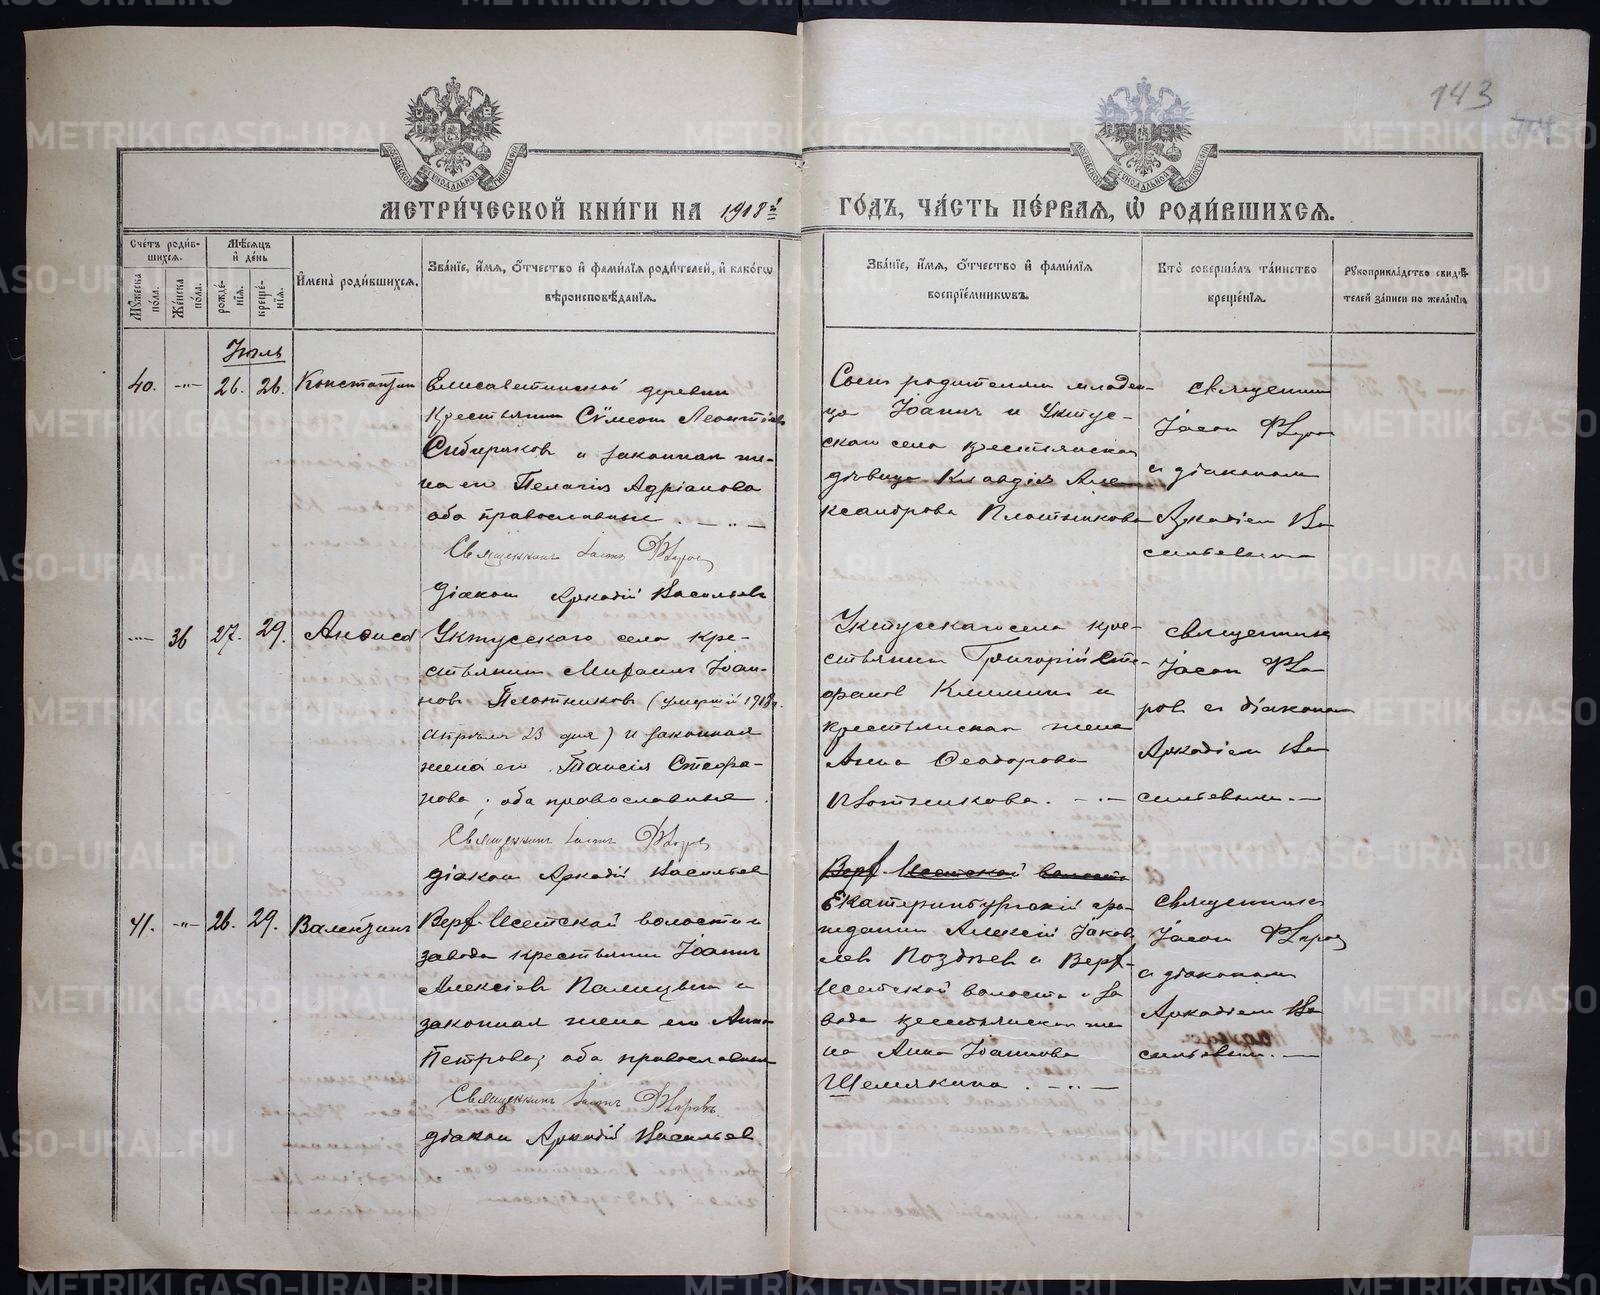 143
МЕТРИ́ЧЕСКОЙ КНИ́ГИ НА 1918й ГО́ДЪ, ЧА́СТЬ ПЕ́РВАѦ, Ѡ҆ РОДИ́ВШИХСѦ.
Сче́тъ роди́в-
шихсѧ.
Мꙋ́жеска по́ла.
Же́нска по́ла.
Мѣ́сѧцъ и҆ де́нь
рожде́-
нїѧ.
креще́-
нїѧ.
И҆мена̀ роди́вшихсѧ.
Зва́нїе, и҆́мѧ, ѻ҆́тчество и҆ фами́лїѧ роди́телей, и҆ како́гѡ
вѣроисповѣ́данїѧ.
Зва́нїе, и҆́мѧ, ѻ҆́тчество и҆ фами́лїѧ
воспрїе́мникѡвъ.
Кто̀ соверша́лъ та́инство
креще́нїѧ.
Рꙋкоприкла́дство свидѣ́-
телей за́писи по жела́нїю
Іюль
40. -"- 26. 26. Константин
Елисаветинской деревни
крестьянин Сѵмеон Леонтіев
Сибиряков и законная же-
на его Пелагія Адріанова
оба православные . - " -
Священникъ Іасонъ Флоров
Діакон Аркадій Васильев
Своих родителям младен-
ца Іоанн и Уктус-
скаго села крестьянская
девица Клавдія Але-
ксандрова Плотникова
священник
Іасон Флоров
с діаконом
Аркадіем Ва-
сильевым
-"- 36 27. 29. Анфиса
Уктусскаго села кре-
стьянин Михаил Іоан-
нов Плотников (умершій 1918 г.
апреля 23 дня) и законная
жена его Таисія Стефа-
нова; оба православные.
Священникъ Іасонъ Флоров
діакон Аркадій Васильев
Уктусскаго села кре-
стьянин Григорій Сте-
фанов Климин и
крестьянская жена
Анна Феодорова
Плотникова. - . -
священник
Іасон Фло-
ров с діаконом
Аркадіем Ва-
сильевым. -
41. -"- 26. 29. Валентин
Верх-Исетской волости и
завода крестьянин Іоанн
Алексіев Палицын и
законная жена его Анна
Петрова; оба православные
Священникъ Іасонъ Флоровъ.
діакон Аркадій Васильев
Верх-Исетской волости
Екатеринбургскій гра-
жданин Алексій Іаков-
лев Позднев и Верх-
Исетской волости и за-
вода крестьянская же-
на Анна Іоаннова
Шемякина. - " -
священник
Іасон Флоров
с діаконом
Аркадіем Ва-
сильевым. -
METRIKI.GASO-URAL.RU